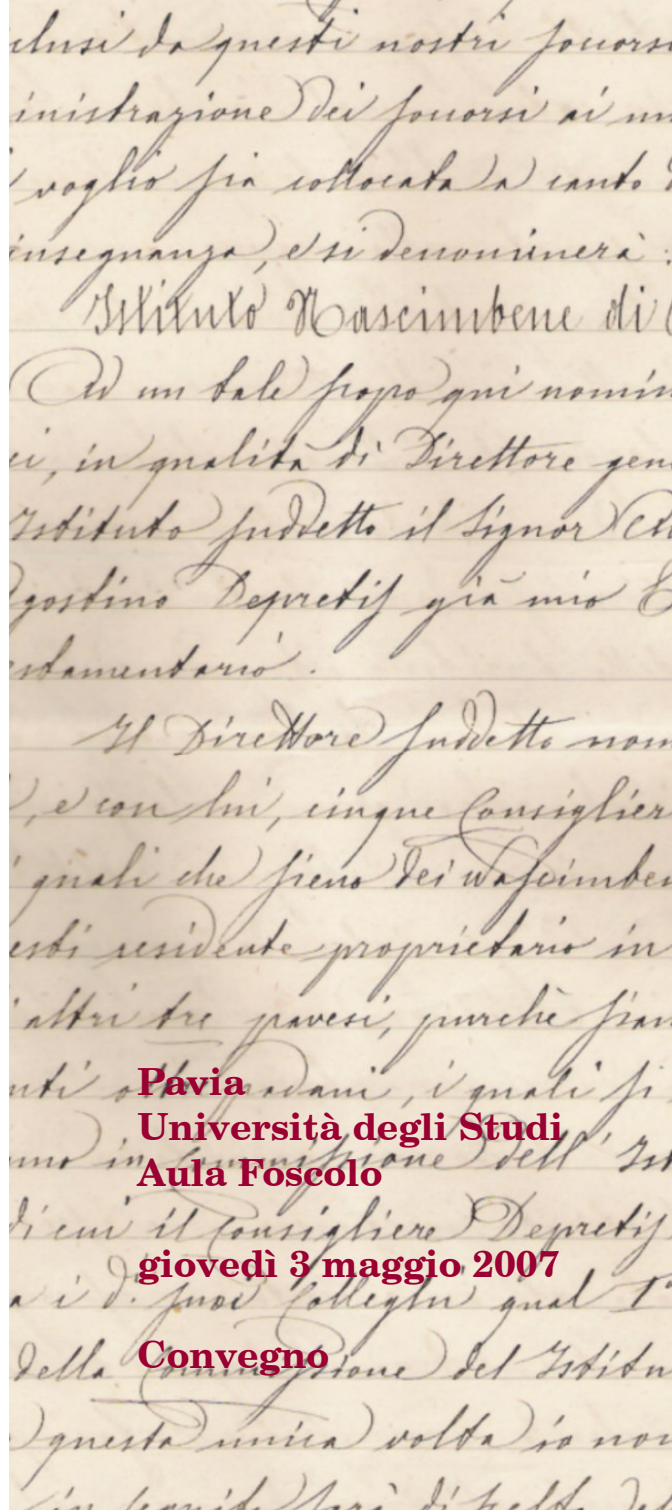 clusi da questi nostri soccorsi
inistrazione dei soccorsi ai
voglio sia collocata a canto
insegnanza, e si denominerà:
Istituto Nascimbene di
Ad un tale scopo qui nomin
ei, in qualità di Direttore gene
Istituto suddetto il Signor
gostino Depretis già mio
stamentario.
Il Direttore suddetto nom
, e con lui, cinque Consiglier
quali che sieno dei Nascimben
esti residente proprietario in
altri tre pavesi, purchè sian
nti oltrepadani, i quali si
nno in Commissione dell' Ist
di cui il Consigliere Depretis
a i di suoi Colleghi qual
della Commissione del Istitu
questa unica volta io nom
in seguito sarà di
Pavia
Università degli Studi
Aula Foscolo
giovedì 3 maggio 2007
Convegno